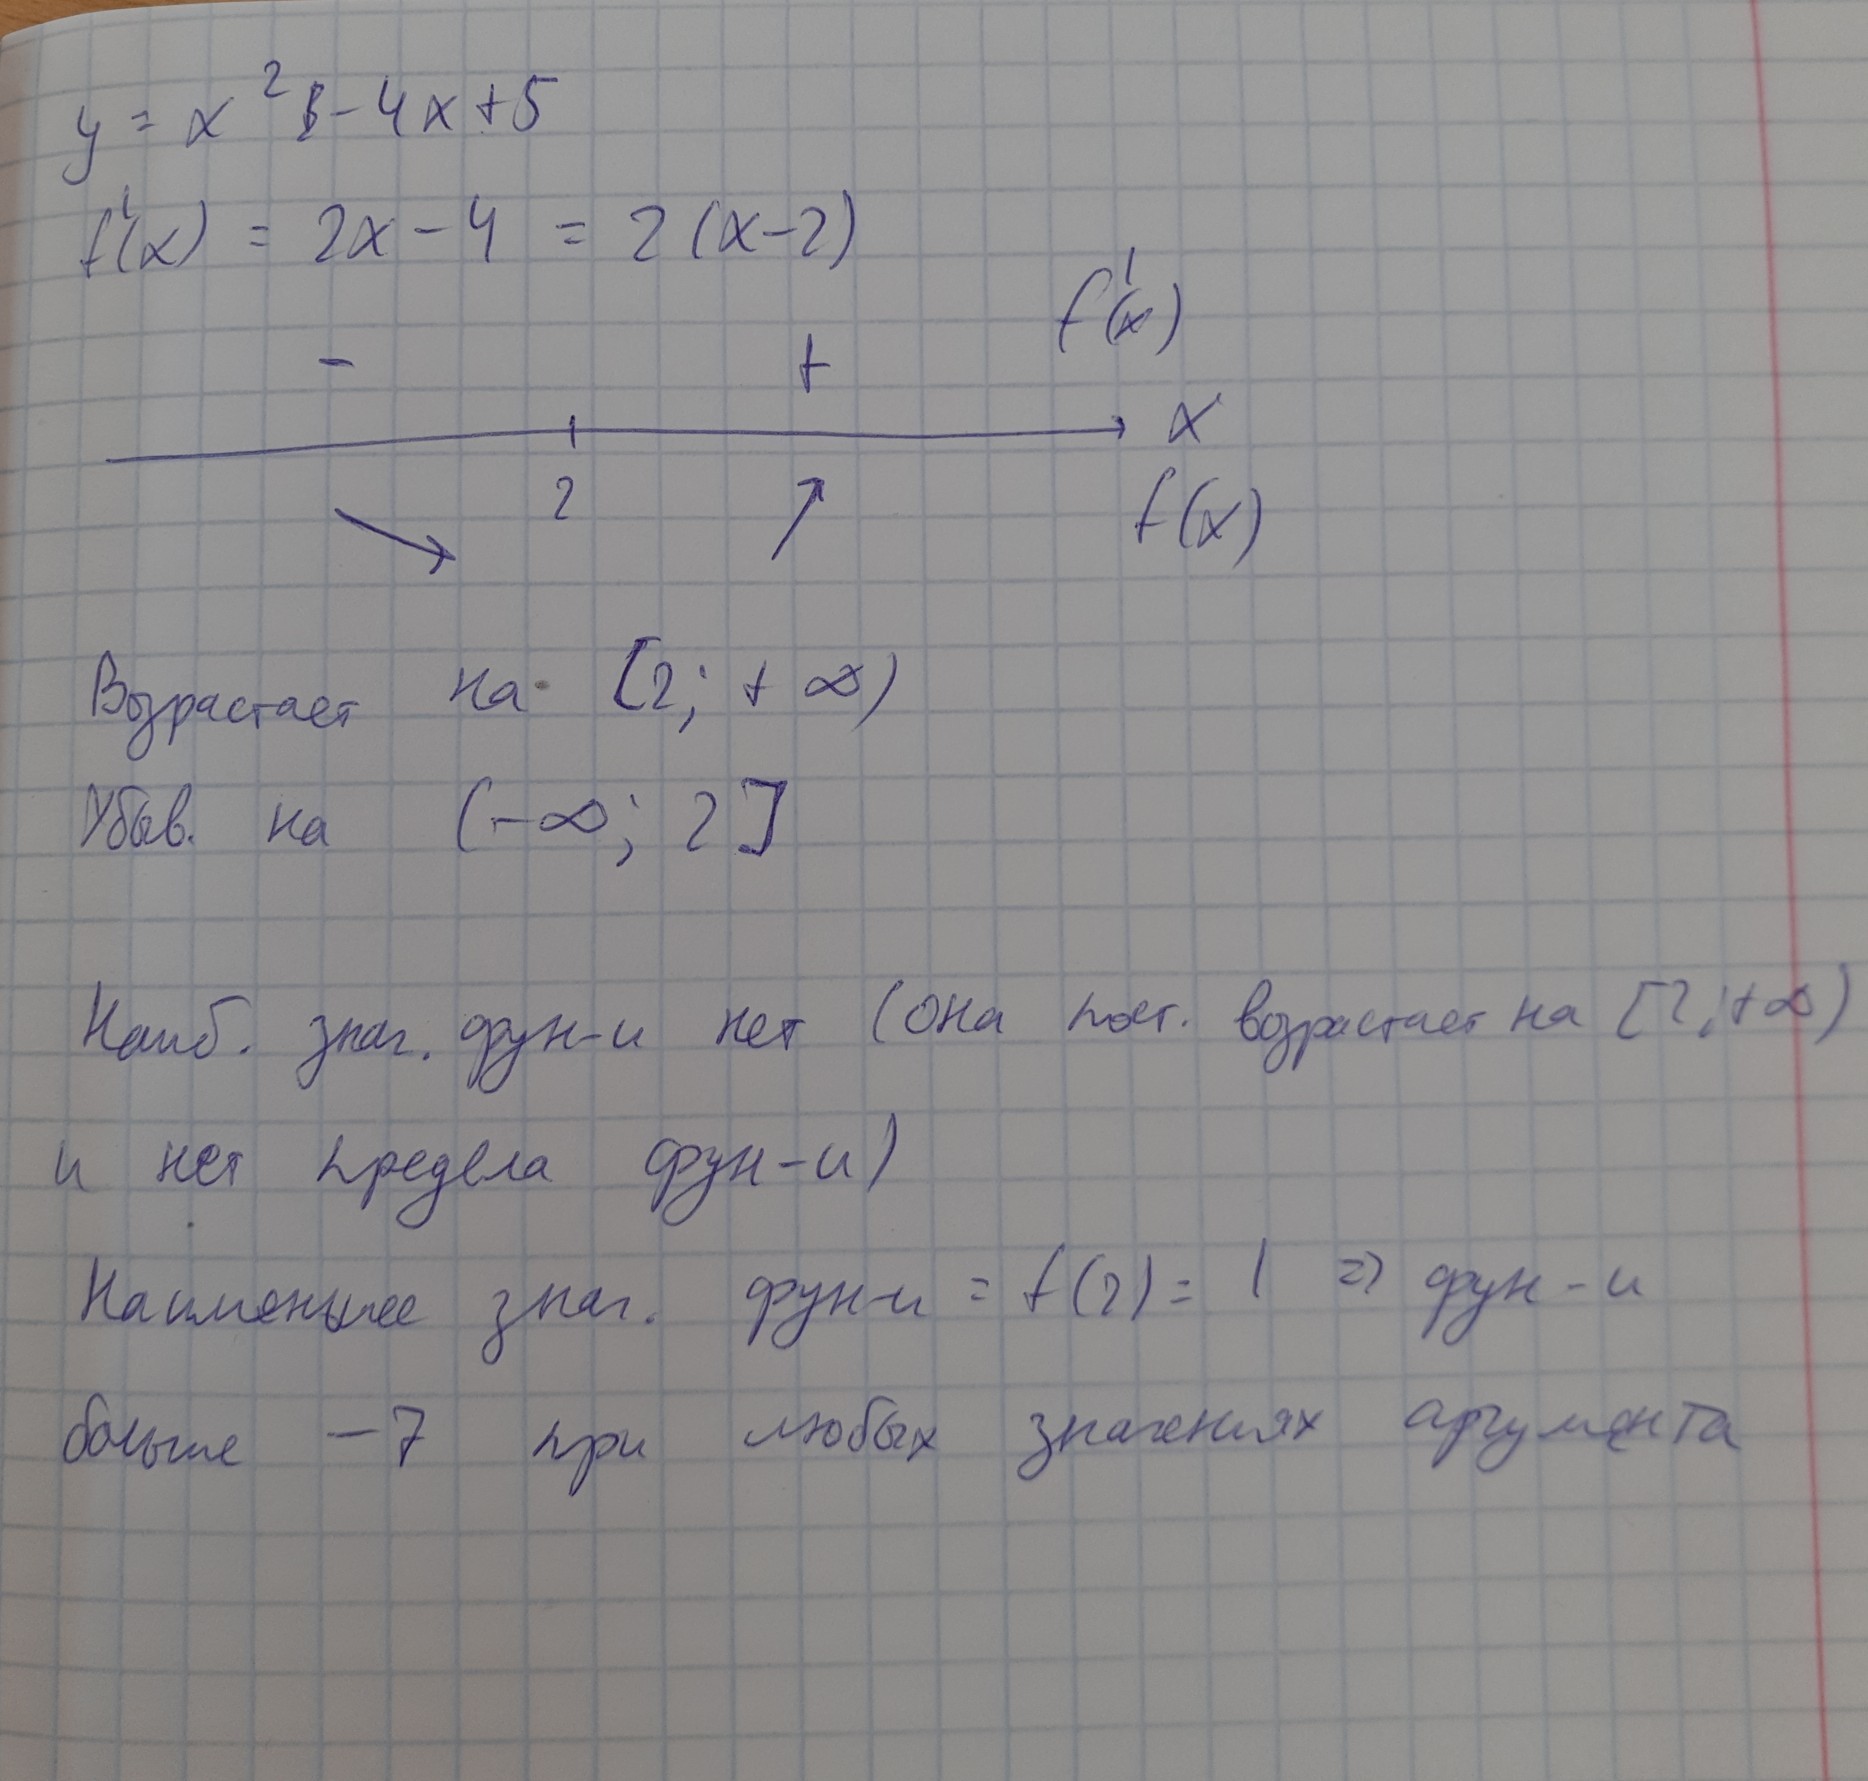 y = x² - 4x + 5
f'(x) = 2x - 4 = 2(x-2)
f'(x)
- +
x
2
f(x)
Возрастает на [2; +∞)
Убыв. на (-∞; 2]
Наиб. знач. фун-и нет (она пост. возрастает на [2; +∞)
и нет предела фун-и)
Наименьшее знач. фун-и = f(2) = 1 ⇒ фун-и
больше -7 при любых значениях аргумента